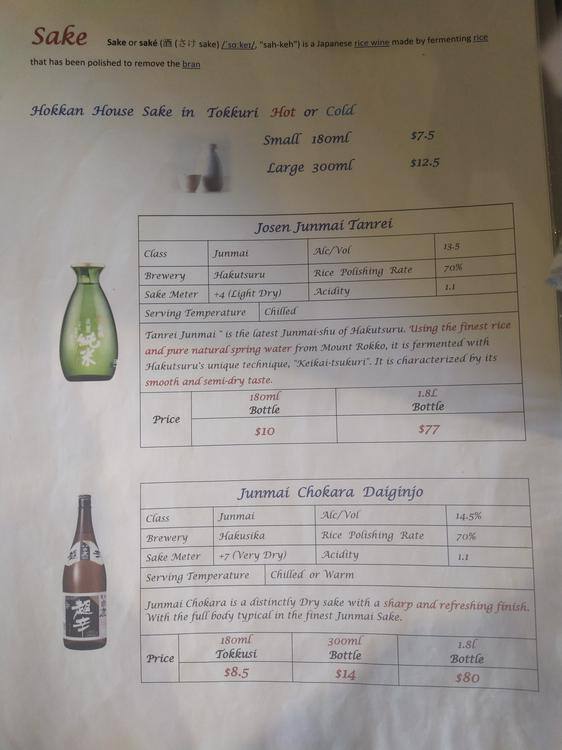 Sake Sake or saké (酒 (さけ sake) /ˈsɑːkeɪ/, "sah-keh") is a Japanese rice wine made by fermenting rice
that has been polished to remove the bran
Hokkan House Sake in Tokkuri Hot or Cold
Small 180ml $7.5
Large 300ml $12.5
Josen Junmai Tanrei
Class Junmai Alc/Vol 13.5
Brewery Hakutsuru Rice Polishing Rate 70%
Sake Meter +4 (Light Dry) Acidity 1.1
Serving Temperature Chilled
Tanrei Junmai " is the latest Junmai-shu of Hakutsuru. Using the finest rice
and pure natural spring water from Mount Rokko, it is fermented with
Hakutsuru's unique technique, "Keikai-tsukuri". It is characterized by its
smooth and semi-dry taste.
純米
Price 180ml Bottle 1.8L Bottle
$10 $77
Junmai Chokara Daiginjo
Class Junmai Alc/Vol 14.5%
Brewery Hakusika Rice Polishing Rate 70%
Sake Meter +7 (Very Dry) Acidity 1.1
Serving Temperature Chilled or Warm
Junmai Chokara is a distinctly Dry sake with a sharp and refreshing finish.
With the full body typical in the finest Junmai Sake.
超辛
Price 180ml Tokkusi 300ml Bottle 1.8l Bottle
$8.5 $14 $80